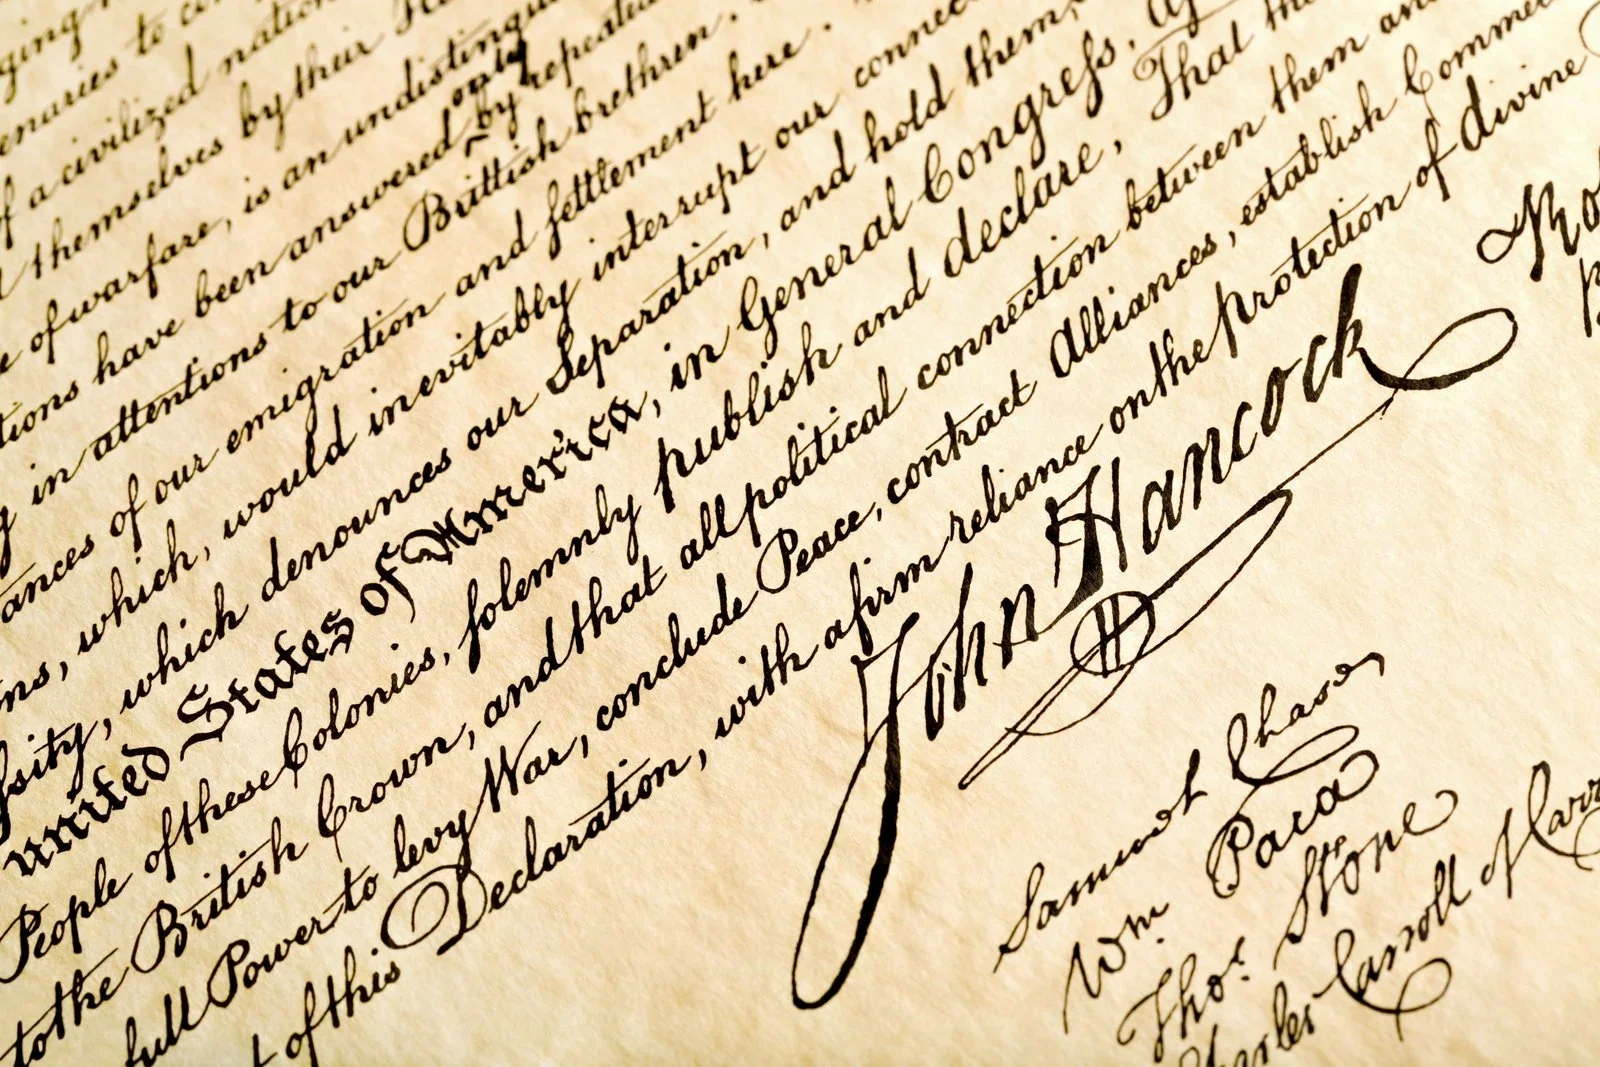 nging
enaries to
of a civilized nation
themselves by their
e of warfare, is an undistingu
only
tions have been answered by repeated
g in attentions to our Brittish brethren.
ances of our emigration and settlement here.
ns, which, would inevitably interrupt our connec
ssity, which denounces our Separation, and hold them,
united States of America, in General Congress,
People of these Colonies, solemnly publish and declare, That
to the British Crown, and that all political connection between them an
full Power to levy War, conclude Peace, contract Alliances, establish Comme
t of this Declaration, with a firm reliance on the protection of divine
John Hancock
Samuel Chase
Wm. Paca
Thos. Stone
Charles Carroll of Carr